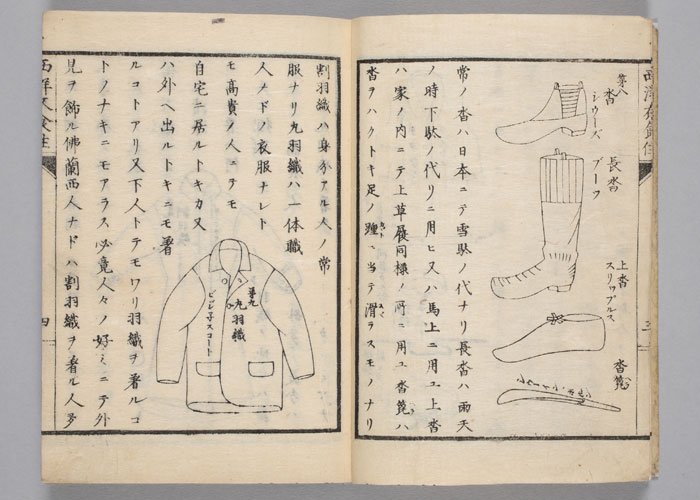 西洋衣食住
三
第八
沓
シウーズ
長沓
ブーツ
上沓
スリップルス
沓篦
常ノ沓ハ日本ニテ雪駄ノ代ナリ長沓ハ雨天
ノ時下駄ノ代リニ用ヒ又ハ馬上ニ用ユ上沓
ハ家ノ内ニテ上草履同様ノ所ニ用ユ沓篦ハ
沓ヲハクトキ足ノ踵ニ当テ滑ラスモノナリ
割羽織ハ身分アル人ノ常
服ナリ丸羽織ハ一体職
人ナドノ衣服ナレト
モ高貴ノ人ニテモ
自宅ニ居ルトキカ又
ハ外ヘ出ルトキニモ着
ルコトアリ又下人トテモワリ羽織ヲ着ルコ
トノナキニモアラス必竟人々ノ好ミニテ外
見ヲ飾ル佛蘭西人ナドハ割羽織ヲ着ル人多
第九
丸羽織
ビジ子スコート
西洋衣食住
四